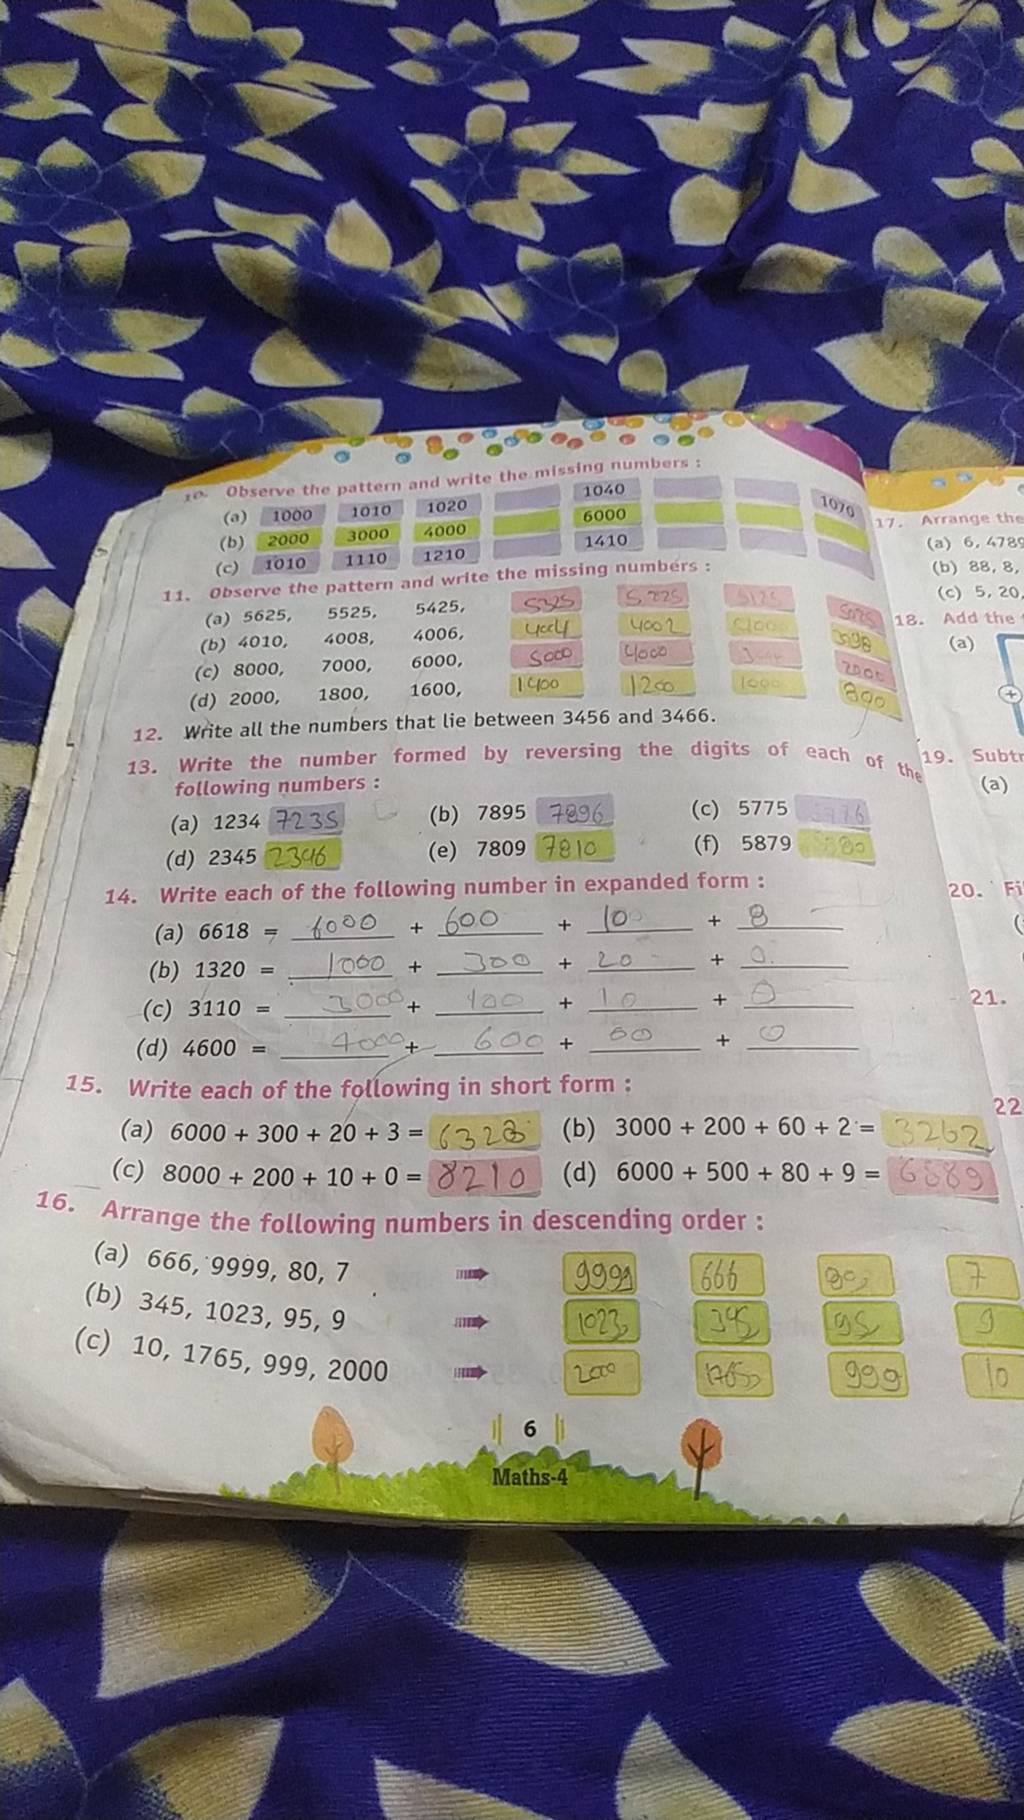 10. Observe the pattern and write the missing numbers :
(a) 1000 1010 1020 1040 1070
(b) 2000 3000 4000 6000
(c) 1010 1110 1210 1410
11. Observe the pattern and write the missing numbers :
(a) 5625, 5525, 5425, 5325 5,225 5125 5025
(b) 4010, 4008, 4006, 4004 4002 4000
(c) 8000, 7000, 6000, 5000 4000 2000
(d) 2000, 1800, 1600, 1400 1200 1000 800
12. Write all the numbers that lie between 3456 and 3466.
13. Write the number formed by reversing the digits of each of the
following numbers :
(a) 1234 7235 (b) 7895 7896 (c) 5775
(d) 2345 2346 (e) 7809 7810 (f) 5879
14. Write each of the following number in expanded form :
(a) 6618 = 6000 + 600 + 10 + 8
(b) 1320 = 1000 + 300 + 20 + 0
(c) 3110 = 3000 + 100 + 10 + 0
(d) 4600 = 4000 + 600 + 00 + 0
15. Write each of the following in short form :
(a) 6000 + 300 + 20 + 3 = 6323 (b) 3000 + 200 + 60 + 2 = 3262
(c) 8000 + 200 + 10 + 0 = 8210 (d) 6000 + 500 + 80 + 9 = 6589
16. Arrange the following numbers in descending order :
(a) 666, 9999, 80, 7 9999 666 80, 7
(b) 345, 1023, 95, 9 1023, 345, 95, 9
(c) 10, 1765, 999, 2000 2000 1765, 999 10
6
Maths-4
17. Arrange the
(a) 6, 4789
(b) 88, 8,
(c) 5, 20,
18. Add the
(a)
+
19. Subtr
(a)
20. Fi
21.
22